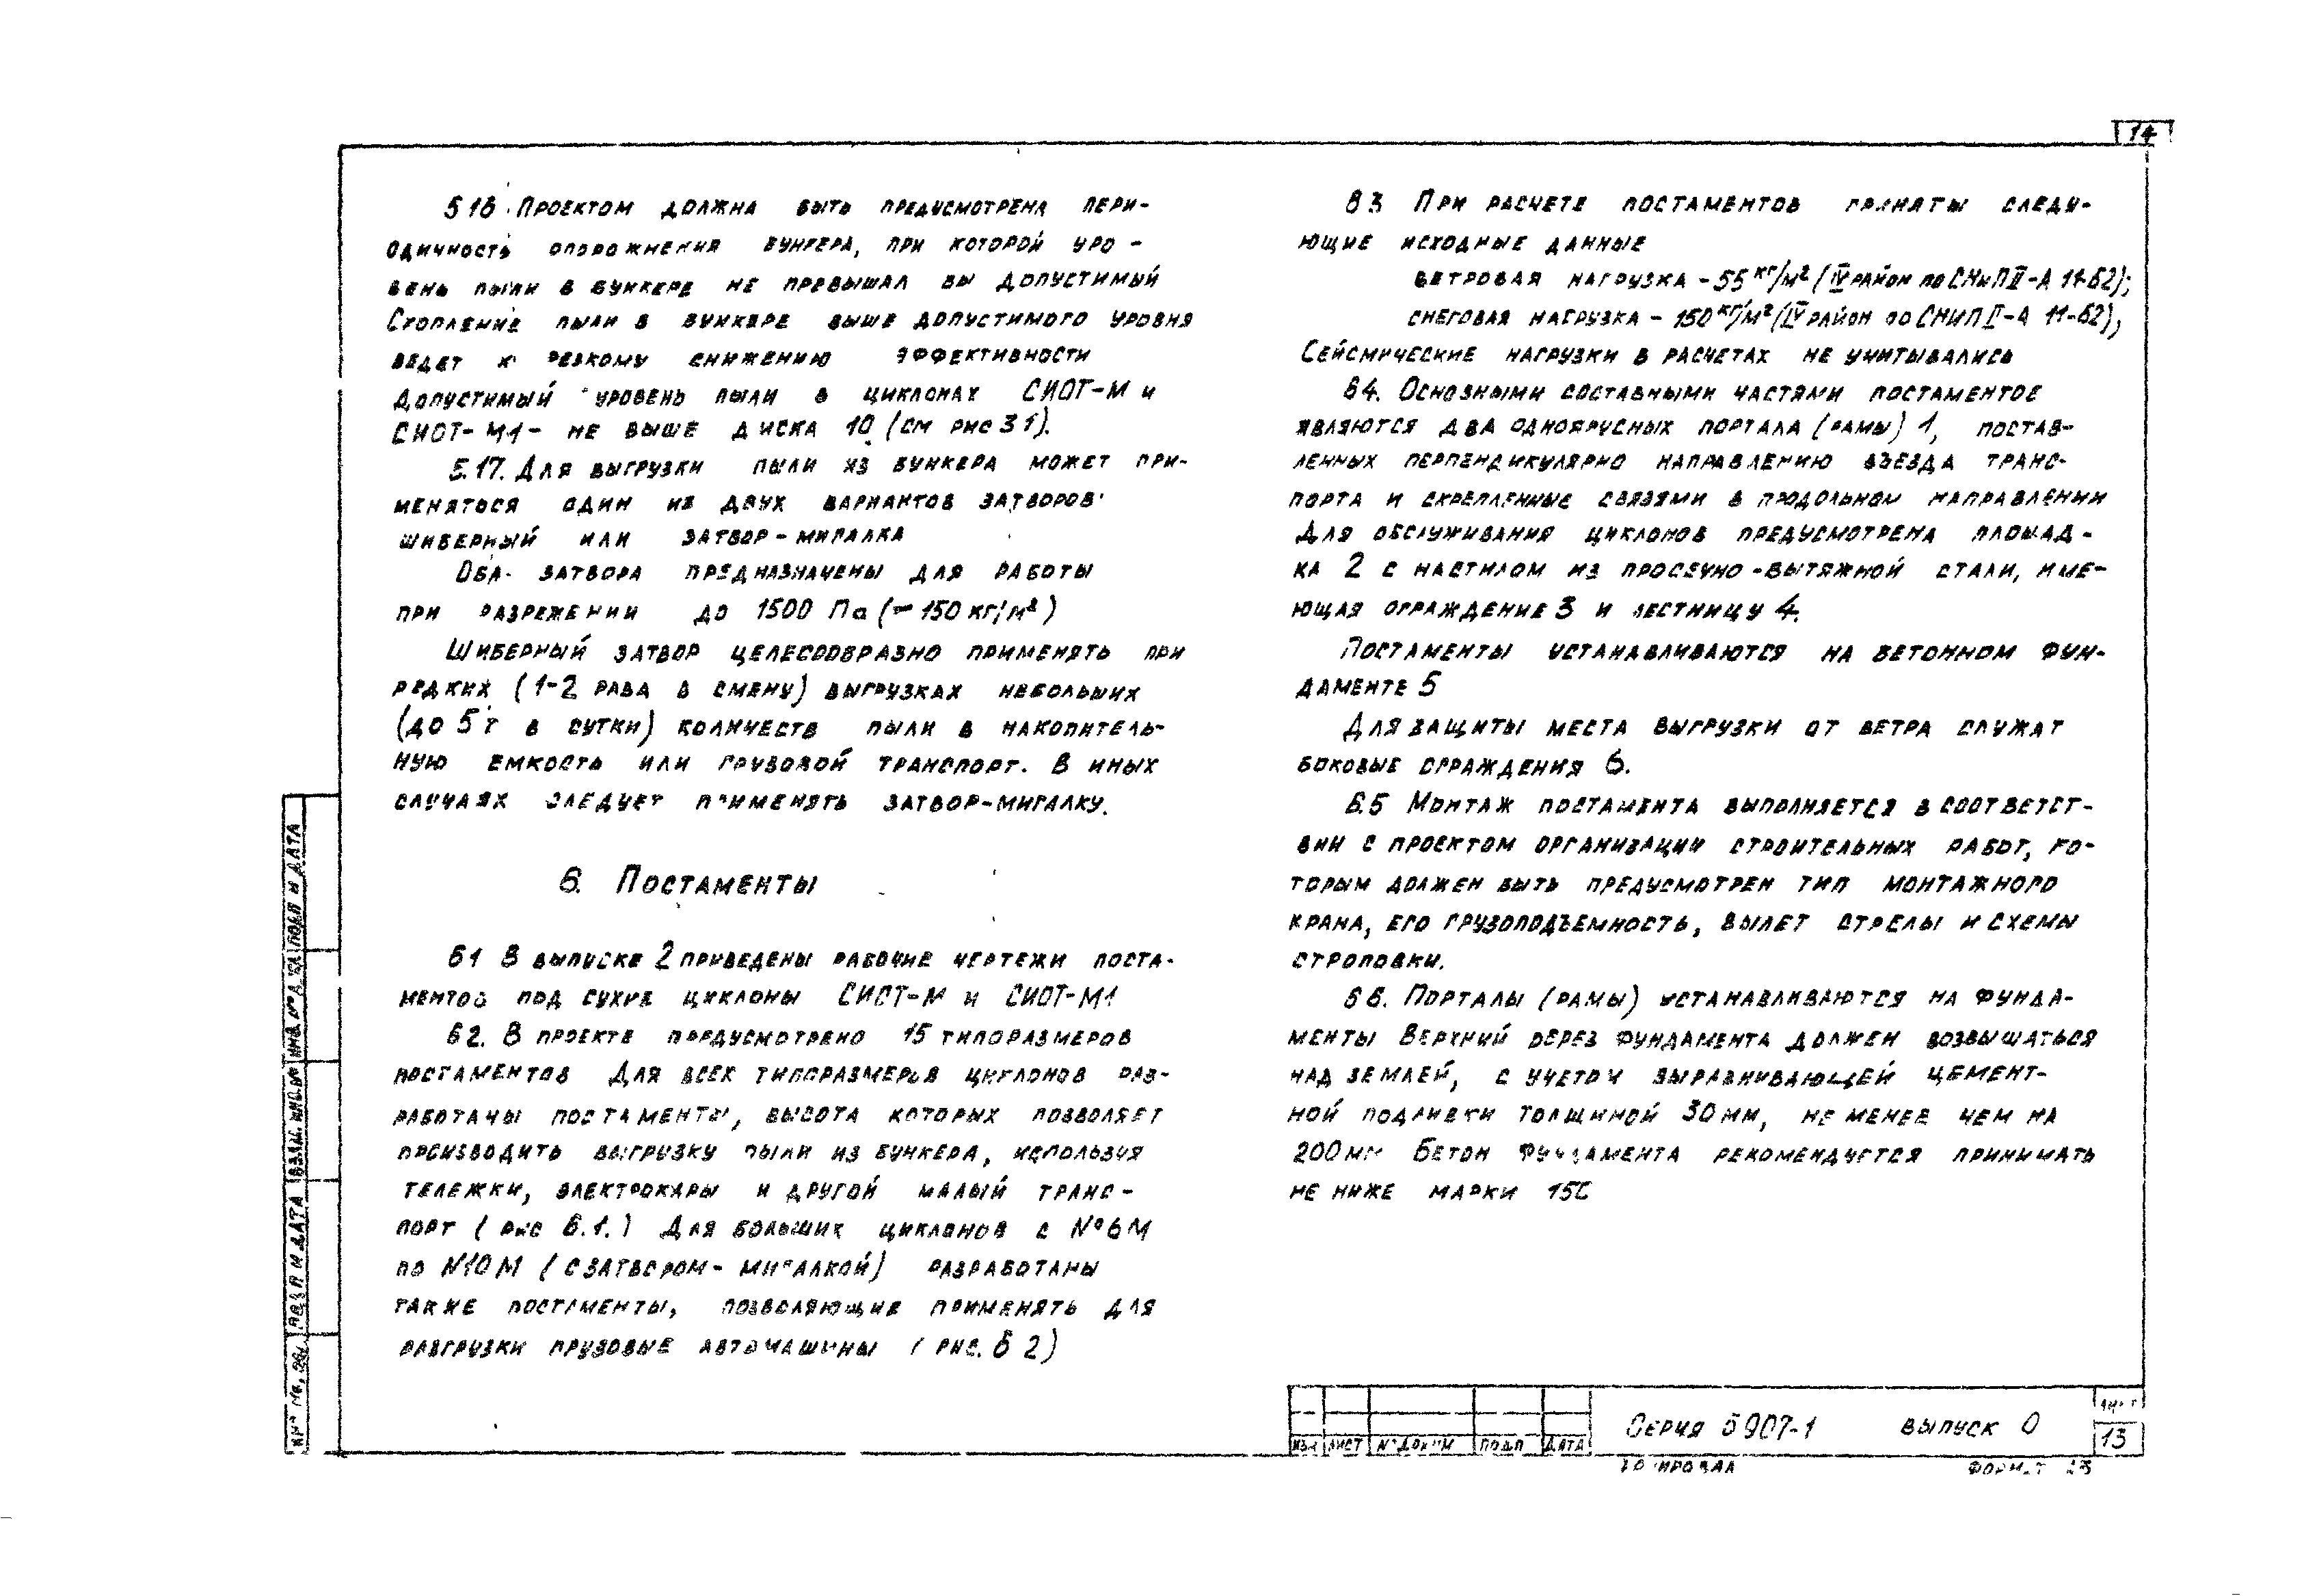 14
5.16. Проектом должна быть предусмотрена пери-
одичность опорожнения бункера, при которой уро-
вень пыли в бункере не превышал бы допустимый
Скопление пыли в бункере выше допустимого уровня
ведет к резкому снижению эффективности
Допустимый уровень пыли в циклонах СИОТ-М и
СИОТ-М1- не выше диска 10 (см рис 3 1).
5.17. Для выгрузки пыли из бункера может при-
меняться один из двух вариантов затворов:
шиберный или затвор-мигалка
Оба затвора предназначены для работы
при разрежении до 1500 Па (~150 кг/м²)
Шиберный затвор целесообразно применять при
редких (1-2 раза в смену) выгрузках небольших
(до 5 т в сутки) количеств пыли в накопитель-
ную емкость или грузовой транспорт. В иных
случаях следует применять затвор-мигалку.
6. Постаменты
6 1 В выпуске 2 приведены рабочие чертежи поста-
ментов под сухие циклоны СИОТ-М и СИОТ-М1
6 2. В проекте предусмотрено 15 типоразмеров
постаментов Для всех типоразмеров циклонов раз-
работаны постаменты, высота которых позволяет
производить выгрузку пыли из бункера, используя
тележки, электрокары и другой малый транс-
порт (рис 6.1.) Для больших циклонов с №6М
по N10М (с затвором-мигалкой) разработаны
также постаменты, позволяющие применять для
разгрузки грузовые автомашины (рис. 6 2)
6 3 При расчете постаментов приняты следу-
ющие исходные данные
ветровая нагрузка - 55 кг/м² (IV район по СНиП II-А 11-62);
снеговая нагрузка - 150 кг/м² (IV район по СНИП II-А 11-62),
Сейсмические нагрузки в расчетах не учитывались
6 4. Основными составными частями постаментов
являются два одноярусных портала (рамы) 1, постав-
ленных перпендикулярно направлению въезда транс-
порта и скрепленные связями в продольном направлении
Для обслуживания циклонов предусмотрена площад-
ка 2 с настилом из просечно-вытяжной стали, име-
ющая ограждение 3 и лестницу 4.
Постаменты устанавливаются на бетонном фун-
даменте 5
Для защиты места выгрузки от ветра служат
боковые ограждения 6.
6.5 Монтаж постамента выполняется в соответст-
вии с проектом организации строительных работ, ко-
торым должен быть предусмотрен тип монтажного
крана, его грузоподъемность, вылет стрелы и схемы
строповки.
6 6. Порталы (рамы) устанавливаются на фунда-
менты Верхний обрез фундамента должен возвышаться
над землей, с учетом выравнивающей цемент-
ной подливки толщиной 30 мм, не менее чем на
200 мм Бетон фундамента рекомендуется принимать
не ниже марки 150
Изм Лист № докум Подп Дата
Серия 5 907-1 выпуск 0
Лист
13
Копировал Формат А3
Инв № Подп и дата Взам. инв № Инв № Подп и дата